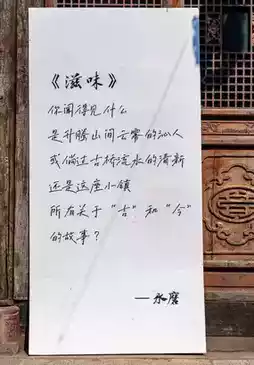 《滋味》
你闻得见什么
是升腾山间云雾的沁人
或偷过古桥流水的清新
还是这座小镇
所有关于“古”和“今”
的故事？
——永磨